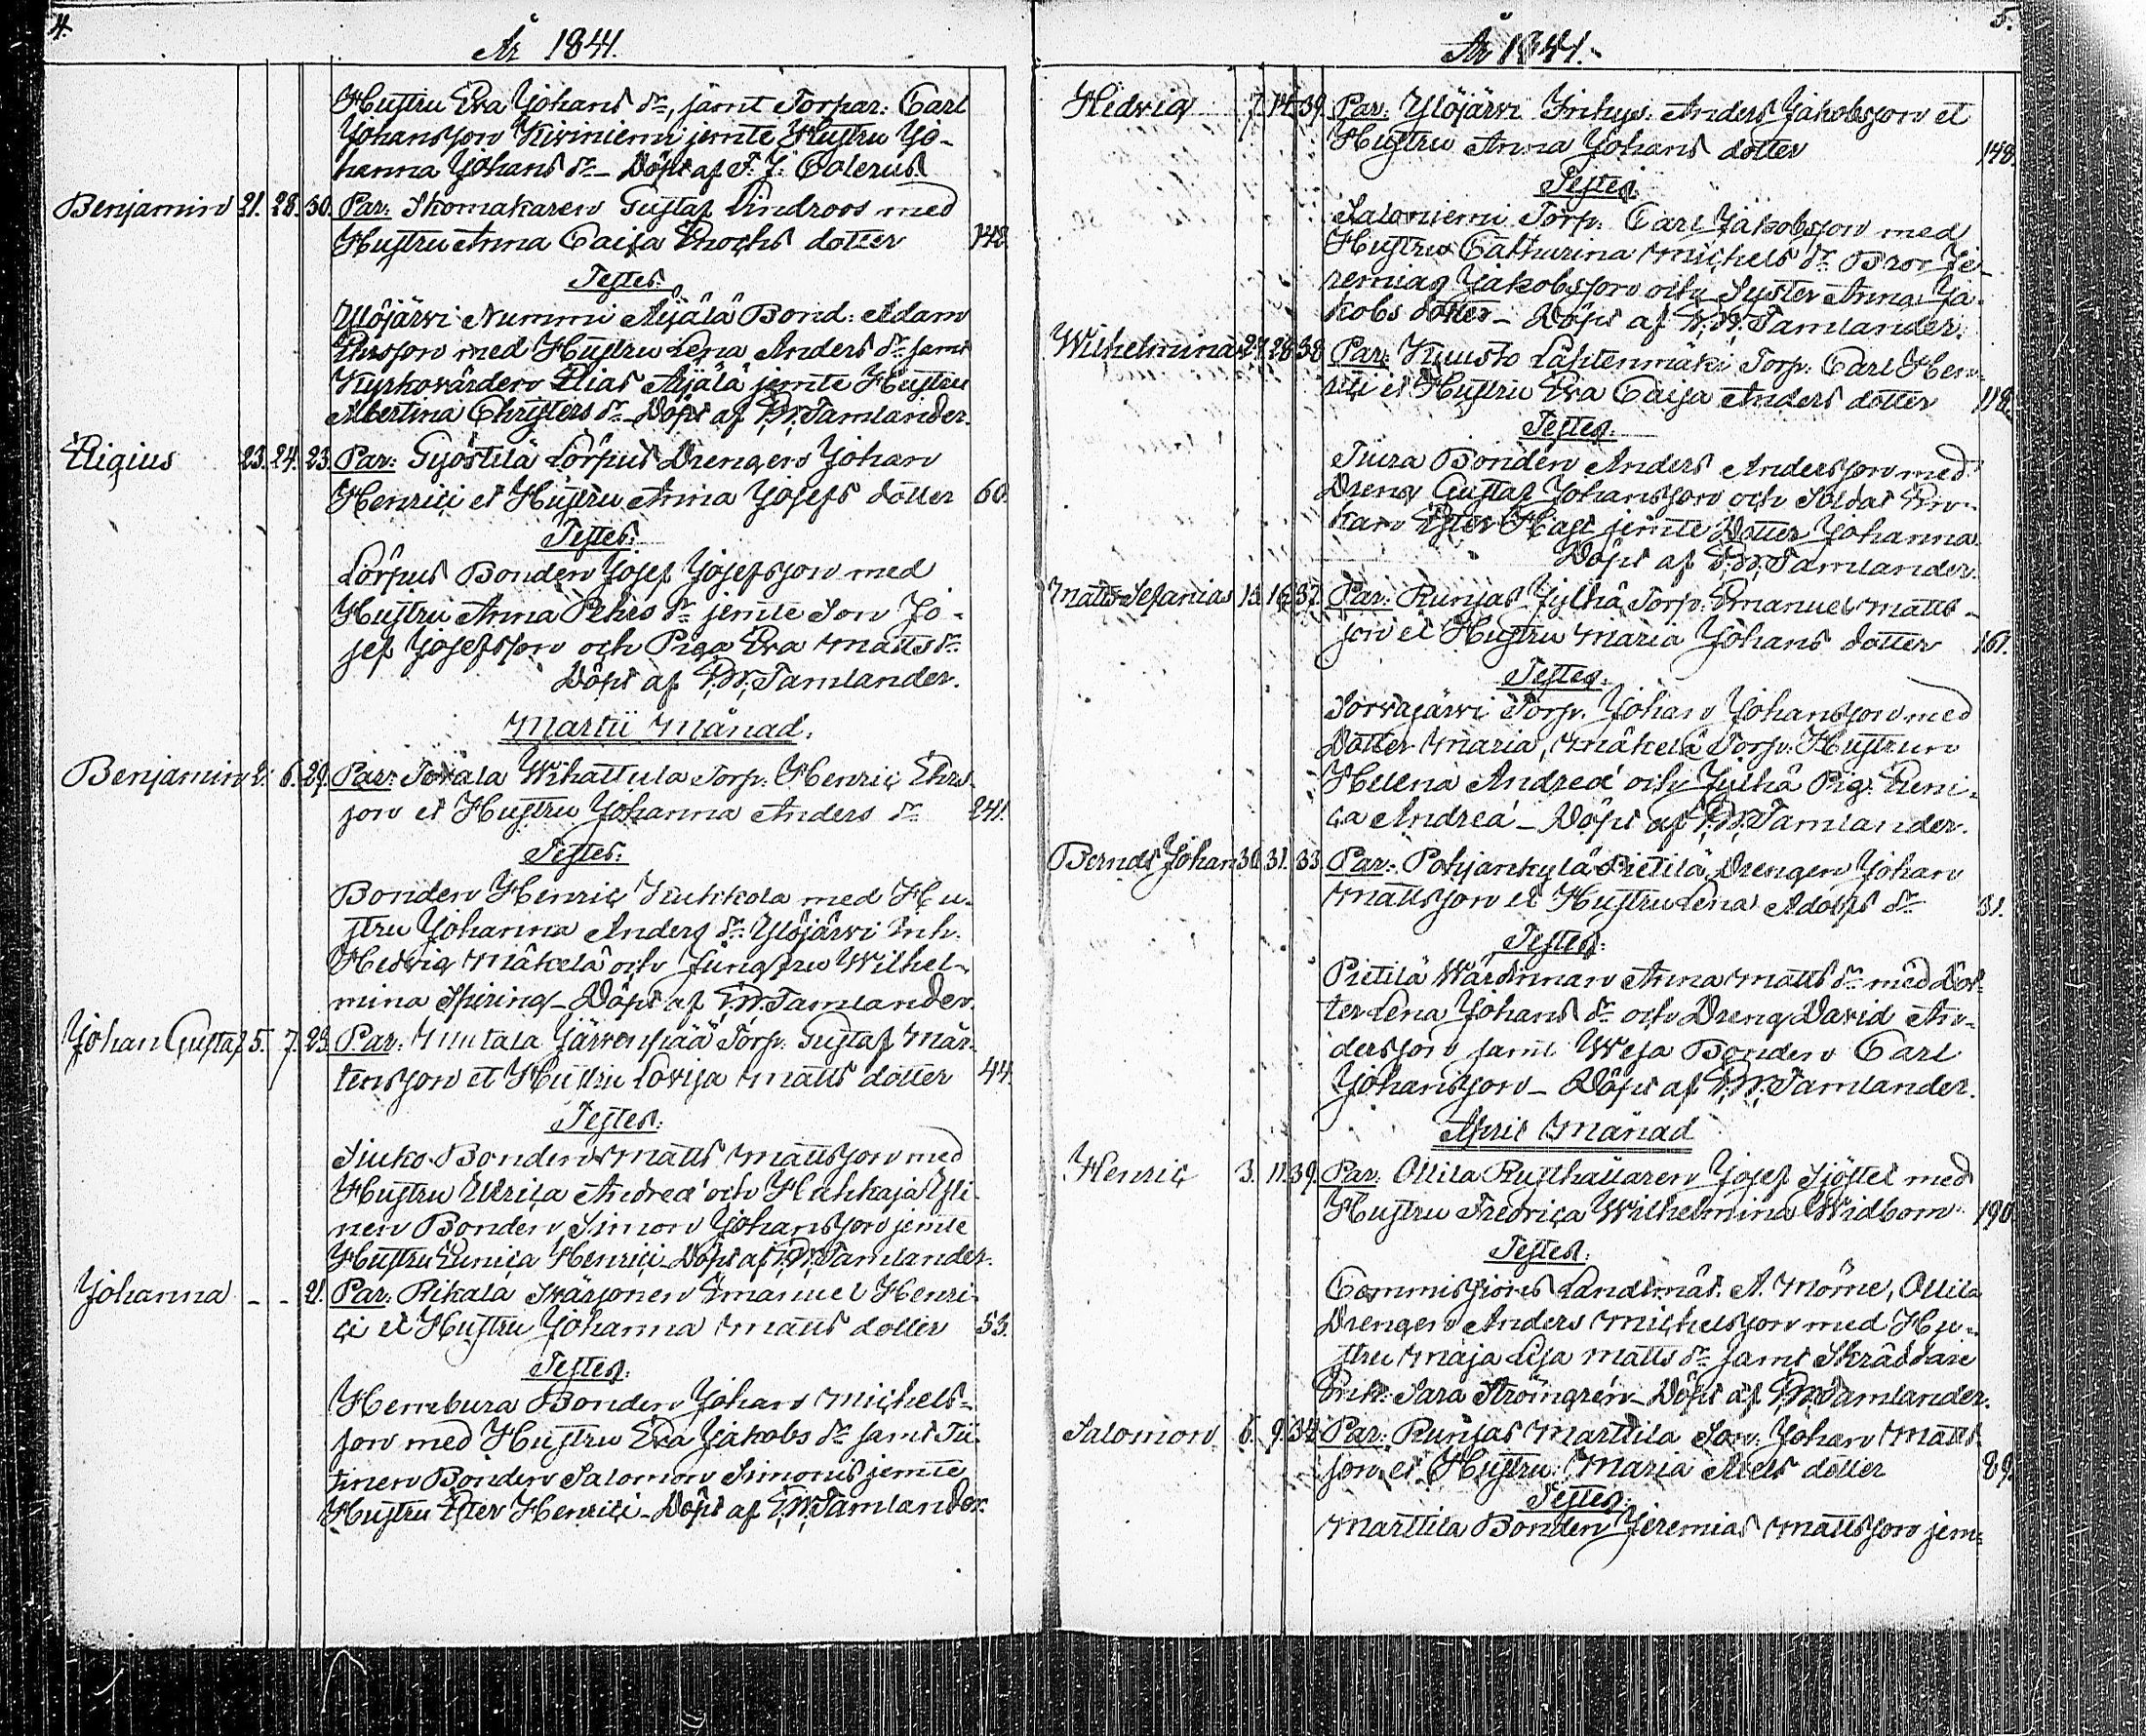 4.
År 1841.
Hustru Eva Johans dr, samt Torpar: Carl
Johansson Kiviniemi jemte Hustru Jo-
hanna Johans dr - Döpt af F. J. Colerus
Benjamin 21. 28. 30. Par: Skomakaren Gustaf Lindroos med
Hustru Anna Caisa Enochs dotter 148.
Testes:
Ylöjärvi Nummi Äijälä Bond: Adam
Ersson med Hustru Lena Anders dr samt
Kyrkovärden Elias Äijälä jemte Hustru
Albertina Christers dr - Döpt af P. W. Tamlander.
Eligius 23. 24. 23. Par: Gyöstilä Lörpus Drengen Johan
Henrici et Hustru Anna Josefs dotter 60.
Testes:
Lörpus Bonden Josef Josefsson med
Hustru Anna Pehrs dr jemte Son Jo-
sef Josefsson och Piga Eva Matts dr
Döpt af P. W. Tamlander.
Martii Månad.
Benjamin 2. 6. 29. Par: Tovala Wihattula Torp: Henric Ehrs-
son et Hustru Johanna Anders dr 241.
Testes:
Bonden Henric Kuhkola med Hu-
stru Johanna Anders dr Ylöjärvi Inh.
Hedvig Mäkelä och Jungfru Wilhel-
mina Spiring - Döpt af P. W. Tamlander.
Johan Gustaf 5. 7. 23. Par: Muntala Järvenpää Torp: Gustaf Mår-
tensson et Hustru Lovisa Matts dotter 44.
Testes:
Siuko Bonden Matts Mattsson med
Hustru Ulrica Andreæ och Hahkaja Yli-
nen Bonden Simon Johansson jemte
Hustru Eunica Henrici - Döpt af P. W. Tamlander.
Johanna - - 21. Par: Rikala Svärjonen Emanuel Henri-
ci et Hustru Johanna Matts dotter 53.
Testes:
Herrebura Bonden Johan Michels-
son med Hustru Eva Jakobs dr samt Tii-
tinen Bonden Salomon Simonis jemte
Hustru Ester Henrici - Döpt af P. W. Tamlander.
5.
År 1841.
Hedvig 7. 14. 39. Par: Ylöjärvi Inhys: Anders Jakobsson et
Hustru Anna Johans dotter 148.
Testes:
Saloniemi Torp. Carl Jakobsson med
Hustru Catharina Michels dr Bror Je-
remias Jakobsson och Syster Anna Ja-
kobs dotter - Döpt af P. W. Tamlander.
Wilhelmina 27. 28. 38. Par: Kuusto Lahtenmäki Torp: Carl Hen-
rici et Hustru Eva Caisa Anders dotter 118.
Testes:
Tiura Bonden Anders Andersson med
Dreng Gustaf Johansson och Soldat En-
kan Ester Hast jemte Dotter Johanna.
Döpt af P. W. Tamlander.
Matts Sefanias 15. 16. 37. Par: Runjas Jylhä Torp: Emanuel Matts-
son et Hustru Maria Johans dotter 161.
Testes:
Sorvajärvi Torp. Johan Johansson med
Dotter Maria, Mäkelä Torp: Hustrun
Helena Andreæ och Jylhä Pig: Euni-
ca Andreæ - Döpt af P. W. Tamlander.
Bernds Johan 30. 31. 33. Par: Pohjankylä Pietilä Drengen Johan
Mattsson et Hustru Lena Adolfs dr 31.
Testes:
Pietilä Wärdinnan Anna Matts dr med Dot-
ter Lena Johans dr och Dreng David An-
dersson samt Wesa Bonden Carl
Johansson - Döpt af P. W. Tamlander.
April Månad
Henric 3. 11. 39. Par: Ollila Rusthållaren Josef Sjöstet med
Hustru Fredrica Wilhelmina Widbom 190.
Testes:
Commissions Landtmät. A. Mörne, Ollila
Drengen Anders Michelsson med Hu-
stru Maja Lisa Matts dr samt Skräddare
Enk: Sara Strömgrén - Döpt af P. W. Tamlander.
Salomon 6. 9. 34. Par: Runjas Marttila Son: Johan Matts-
son et Hustru: Maria Axels dotter 89.
Testes:
Marttila Bonden Jeremias Mattsson jem-